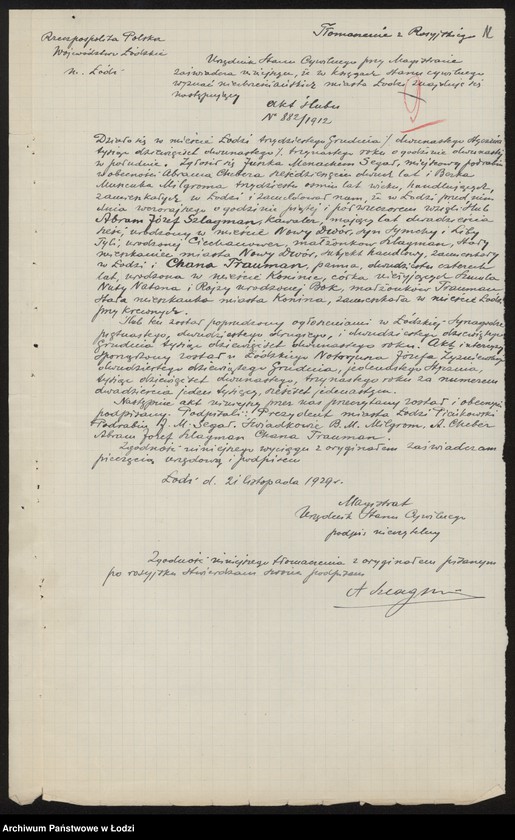 Tłomaczenie z Rosyjskiego
Rzeczpospolita Polska
Województwo Łódzkie
m. Łódź
Urzędnik Stanu Cywilnego przy Magistracie
zaświadcza niniejszem, że w księgach Stanu cywilnego
wyznań niechrześcijańskich miasta Łodzi znajduje się
następujący
Akt Ślubu
Nº 882/1912
Działo się w mieście Łodzi trzydziestego Grudnia / dwunastego Stycznia
tysiąc dziewięćset dwunastego / trzynastego roku o godzinie dwunastej
w południe. Zgłosił się Judka Monachem Segał, miejscowy podrabin
w obecności Abrama Chebera sześćdziesięciu dwóch lat i Berka
Mancuba Milgroma trzydzieści ośmiu lat wieku, handlujących,
zamieszkałych w Łodzi i zameldował nam, że w Łodzi przed nim
dnia wczorajszego o godzinie piątej i pół wieczorem wzięli ślub
Abram Józef Szlagman, kawaler, mający lat dwadzieścia
sześć, urodzony w mieście Nowy Dwór, syn Symchy i Liby
Tyli, urodzonej Ciechanower, małżonków Szlagman, stały
mieszkaniec miasta Nowy Dwór, subjekt handlowy, zamieszkały
w Łodzi i Chana Trauman, panna, dwudziestu czterech
lat, urodzona w mieście Koninie, córka nieżyjących Szmula
Nuty Natana i Rajzy urodzonej Bok, małżonków Trauman
stała mieszkanka miasta Konina, zamieszkała w mieście Łodzi
przy krewnych.
Ślub ten został poprzedzony ogłoszeniami w Łódzkiej Synagodze
piętnastego, dwudziestego drugiego, i dwudziestego dziewiątego
Grudnia tysiąc dziewięćset dwunastego roku. Akt intercyzy
sporządzony został u Łódzkiego Notarjusza Józefa Żyżniewskiego
dwudziestego dziewiątego Grudnia, jedenastego Stycznia,
tysiąc dziewięćset dwunastego, trzynastego roku za numerem
dwadzieścia jeden tysięcy, sześćset jedenastym.
Następnie akt niniejszy przez nas przeczytany został i obecnym
podpisany. Podpisali: / Prezydent miasta Łodzi Pieńkowski
Podrabin J. M. Segał. Świadkowie B. M. Milgrom, A. Cheber
Abram Józef Szlagman Chana Trauman.
Zgodność niniejszego wyciągu z oryginałem zaświadczam
pieczęcią urzędową i podpisem
Łódź d. 21 listopada 1929 r.
Magistrat
Urzędnik Stanu Cywilnego
podpis nieczytelny
Zgodność niniejszego tłomaczenia z oryginałem pisanym
po rosyjsku stwierdzam podpisem
Archiwum Państwowe w Łodzi